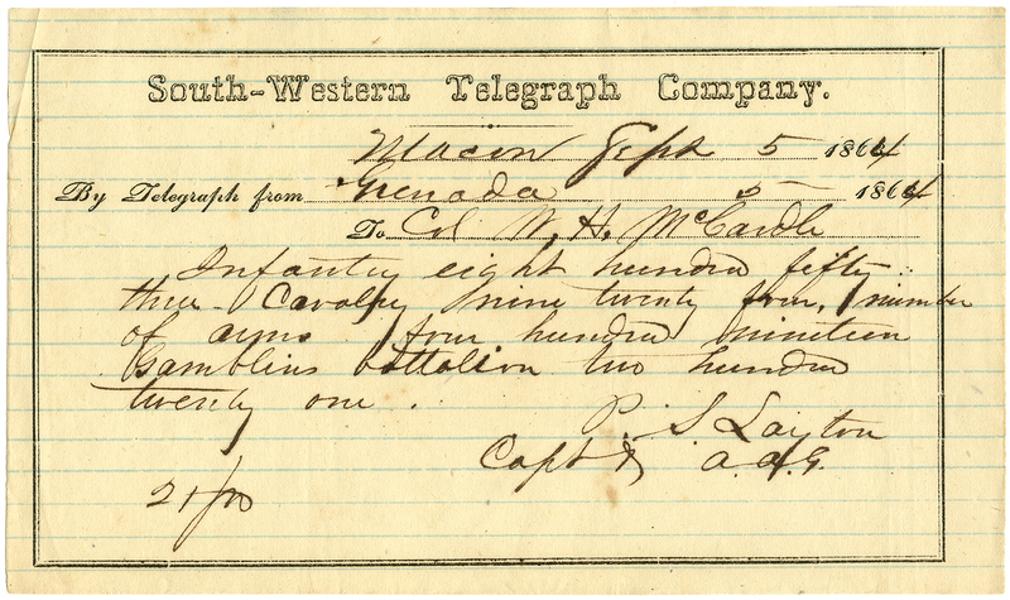 South-Western Telegraph Company.
Macon Sept 5 1864
By Telegraph from Grenada 5 1864
To Col W. H. McCardle
Infantry eight hundred fifty
three Cavalry nine twenty four, number
of arms four hundred nineteen
Gamblins battalion two hundred
twenty one.
P. S Layton
Capt & A. A. G.